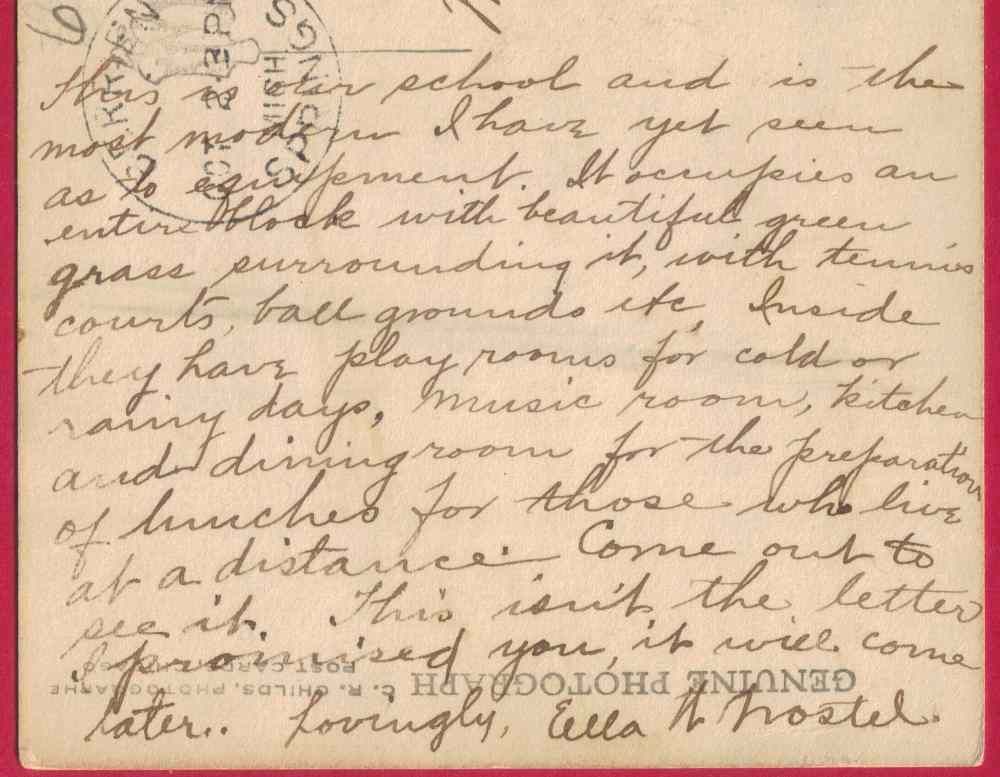 This is our school and is the
most modern I have yet seen
as to equipment. It occupies an
entire block with beautiful green
grass surrounding it, with tennis
courts, ball grounds etc, Inside
they have play rooms for cold or
rainy days, music room, kitchen
and dining room for the preparation
of lunches for those who live
at a distance. Come out to
see it. This isn't the letter
I promised you, it will come
later.. Lovingly, Ella
GENUINE PHOTOGRAPH C. R. CHILDS, PHOTOGRAPHE
POST CARD
OCT 2 PM
SPRINGS
MISH